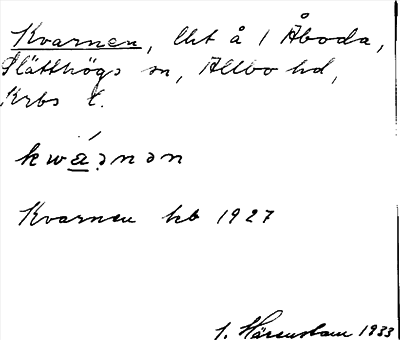 Kvarnen, lht å 1 Åboda,
Slätthögs sn, Allbo hd,
Krbs l.
kwá̱ṇən
Kvarnen kb 1927
S. Härenstam 1933